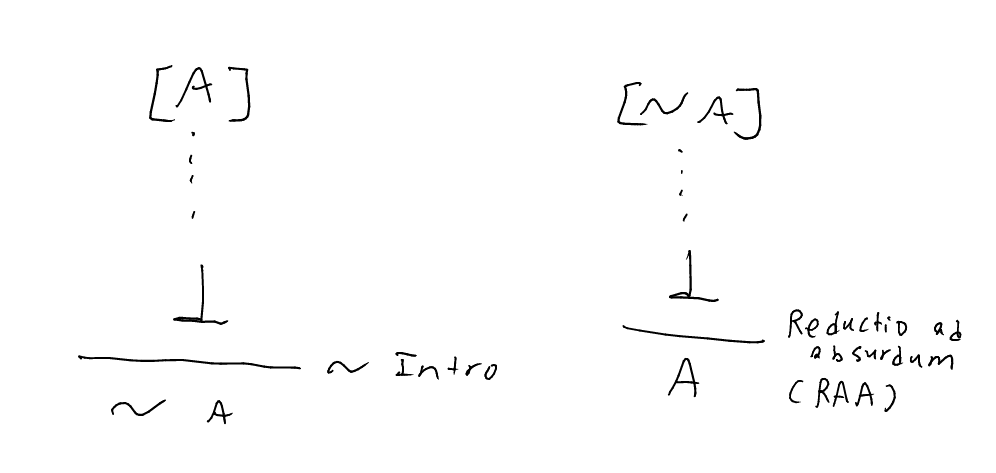 [A]
⋮
⊥
~ Intro
~ A
[~ A]
⋮
⊥
Reductio ad
absurdum
(RAA)
A